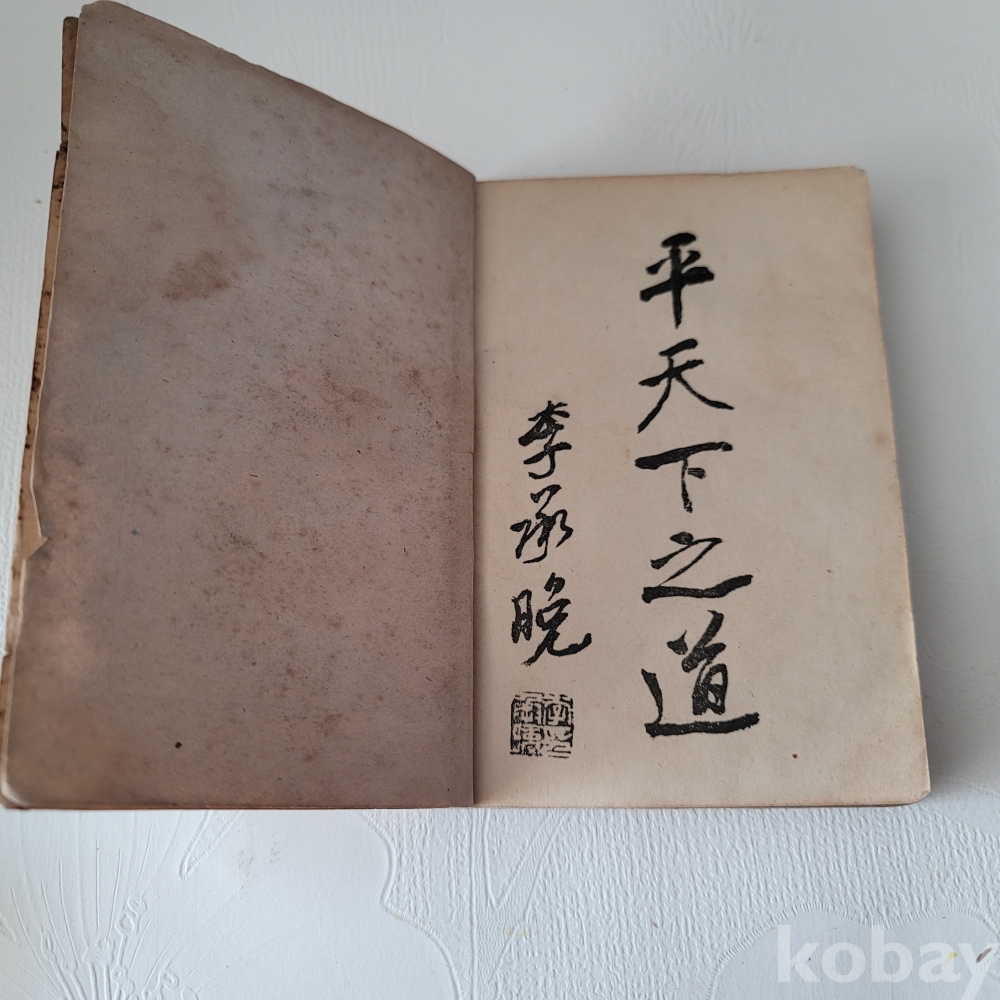 平天下之道
李承晩
kobay